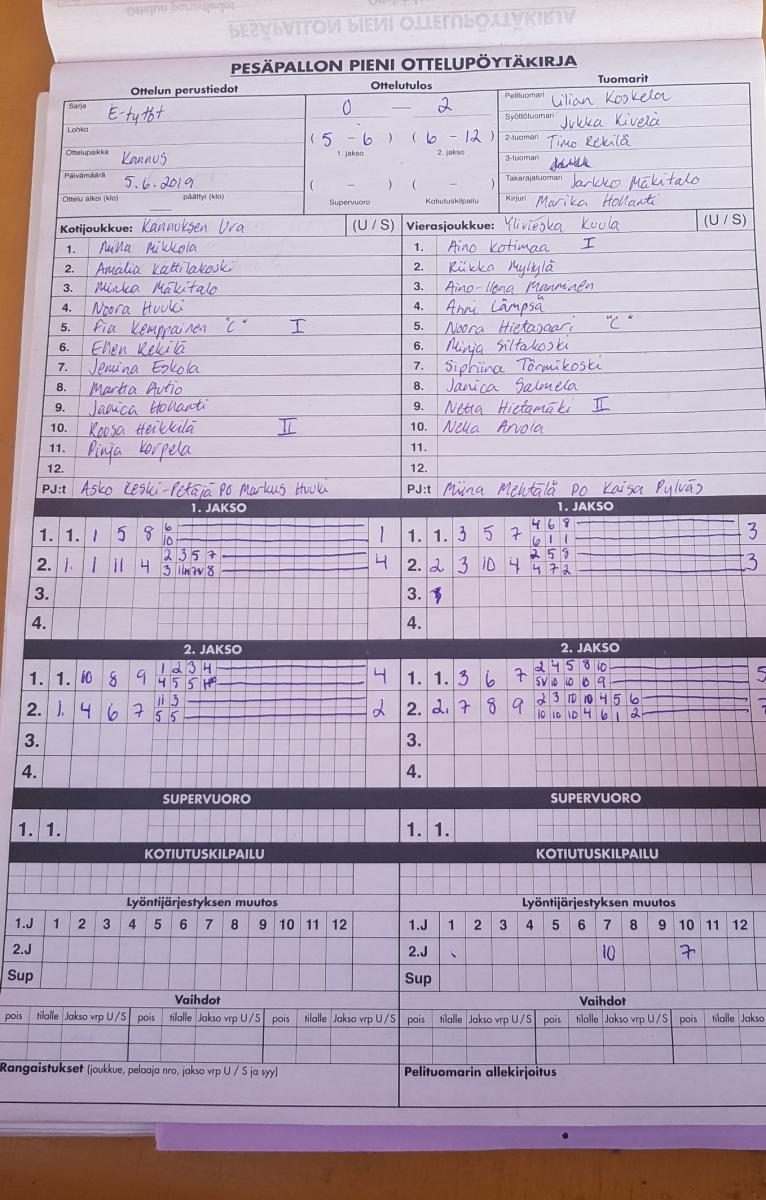 PESÄPALLON PIENI OTTELUPÖYTÄKIRJA
Ottelun perustiedot
Ottelutulos
Tuomarit
Sarja E-tytöt
Lohko
Ottelupaikka Kannus
Päivämäärä 5.6.2019
Ottelu alkoi (klo) päättyi (klo)
0 — 2
( 5 - 6 ) ( 6 - 12 )
1. jakso 2. jakso
( - ) ( - )
Supervuoro Kotiutuskilpailu
Pelituomari Lilian Koskela
Syöttötuomari Jukka Kivelä
2-tuomari Timo Rekilä
3-tuomari
Takarajatuomari Jarkko Mäkitalo
Kirjuri Marika Hollanti
Kotijoukkue: Kannuksen Ura (U / S)
1. Mikkola
2. Amalia Kattilakoski
3. Minka Mäkitalo
4. Noora Huuki
5. Fia Kemppainen "C" I
6. Ellen Rekilä
7. Jemina Eskola
8. Martta Autio
9. Janica Hollanti
10. Roosa Heikkilä II
11. Pinja Korpela
12.
PJ:t Asko Keski-Petäjä PO Markus Huuki
Vierasjoukkue: Ylivieska Kuula (U / S)
1. Aino Kotimaa I
2. Riikka Myllylä
3. Aino-Ilona Manninen
4. Anni Lämpsä
5. Noora Hietasaari "C"
6. Minja Siltakoski
7. Sipriina Törmikoski
8. Janica Salmela
9. Netta Hietamäki II
10. Nella Arvola
11.
12.
PJ:t Miina Mehtälä PO Kaisa Pylväs
1. JAKSO
1. 1. 1 5 8 6 1
10
2. 1. 1 11 4 2 3 5 7 4
3 8
3.
4.
1. JAKSO
1. 1. 3 5 7 4 6 8 3
6 1 1
2. 2 3 10 4 2 5 8 3
4 7 2
3.
4.
2. JAKSO
1. 1. 10 8 9 1 2 3 4 4
4 5 5
2. 1. 4 6 7 11 3 2
5 5
3.
4.
2. JAKSO
1. 1. 3 6 7 2 4 5 8 10 5
5V 10 10 10 9
2. 2. 7 8 9 2 3 10 10 4 5 6 7
10 10 10 4 6 1 2
3.
4.
SUPERVUORO
1. 1.
SUPERVUORO
1. 1.
KOTIUTUSKILPAILU
KOTIUTUSKILPAILU
Lyöntijärjestyksen muutos
1.J 1 2 3 4 5 6 7 8 9 10 11 12
2.J
Sup
Lyöntijärjestyksen muutos
1.J 1 2 3 4 5 6 7 8 9 10 11 12
2.J 10 7
Sup
Vaihdot
pois tilalle Jakso vrp U/S pois tilalle Jakso vrp U/S pois tilalle Jakso vrp U/S
Vaihdot
pois tilalle Jakso vrp U/S pois tilalle Jakso vrp U/S pois tilalle Jakso
Rangaistukset (joukkue, pelaaja nro, jakso vrp U / S ja syy)
Pelituomarin allekirjoitus